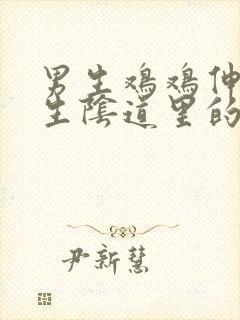 男生鸡鸡伸
生隂道里的
尹新慧